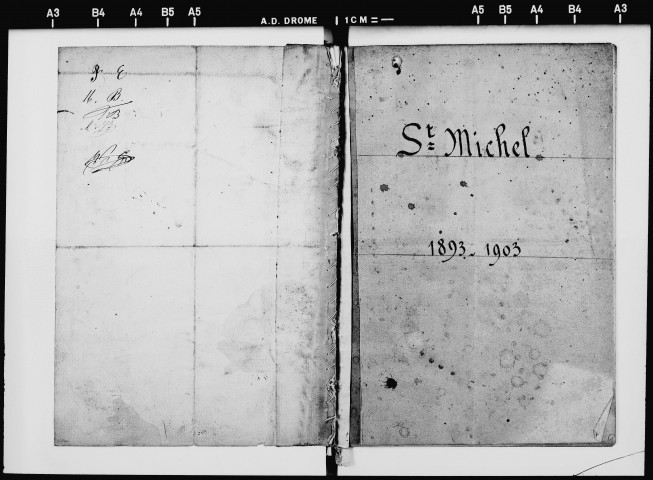 A3 B4 A4 B5 A5 A.D. DROME 1 CM = A5 B5 A4 B4 A3
St Michel
1893 - 1903